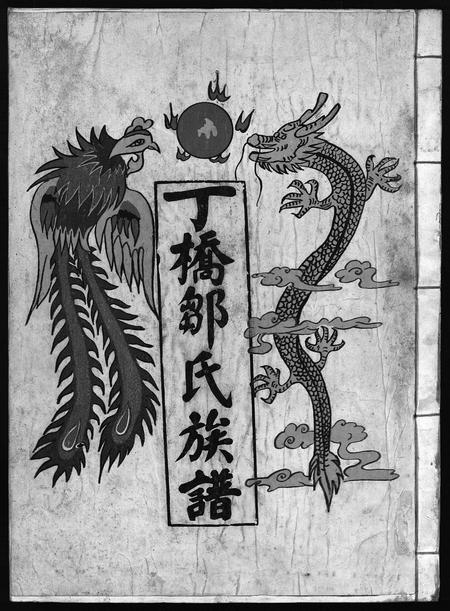 丁橋鄒氏族譜